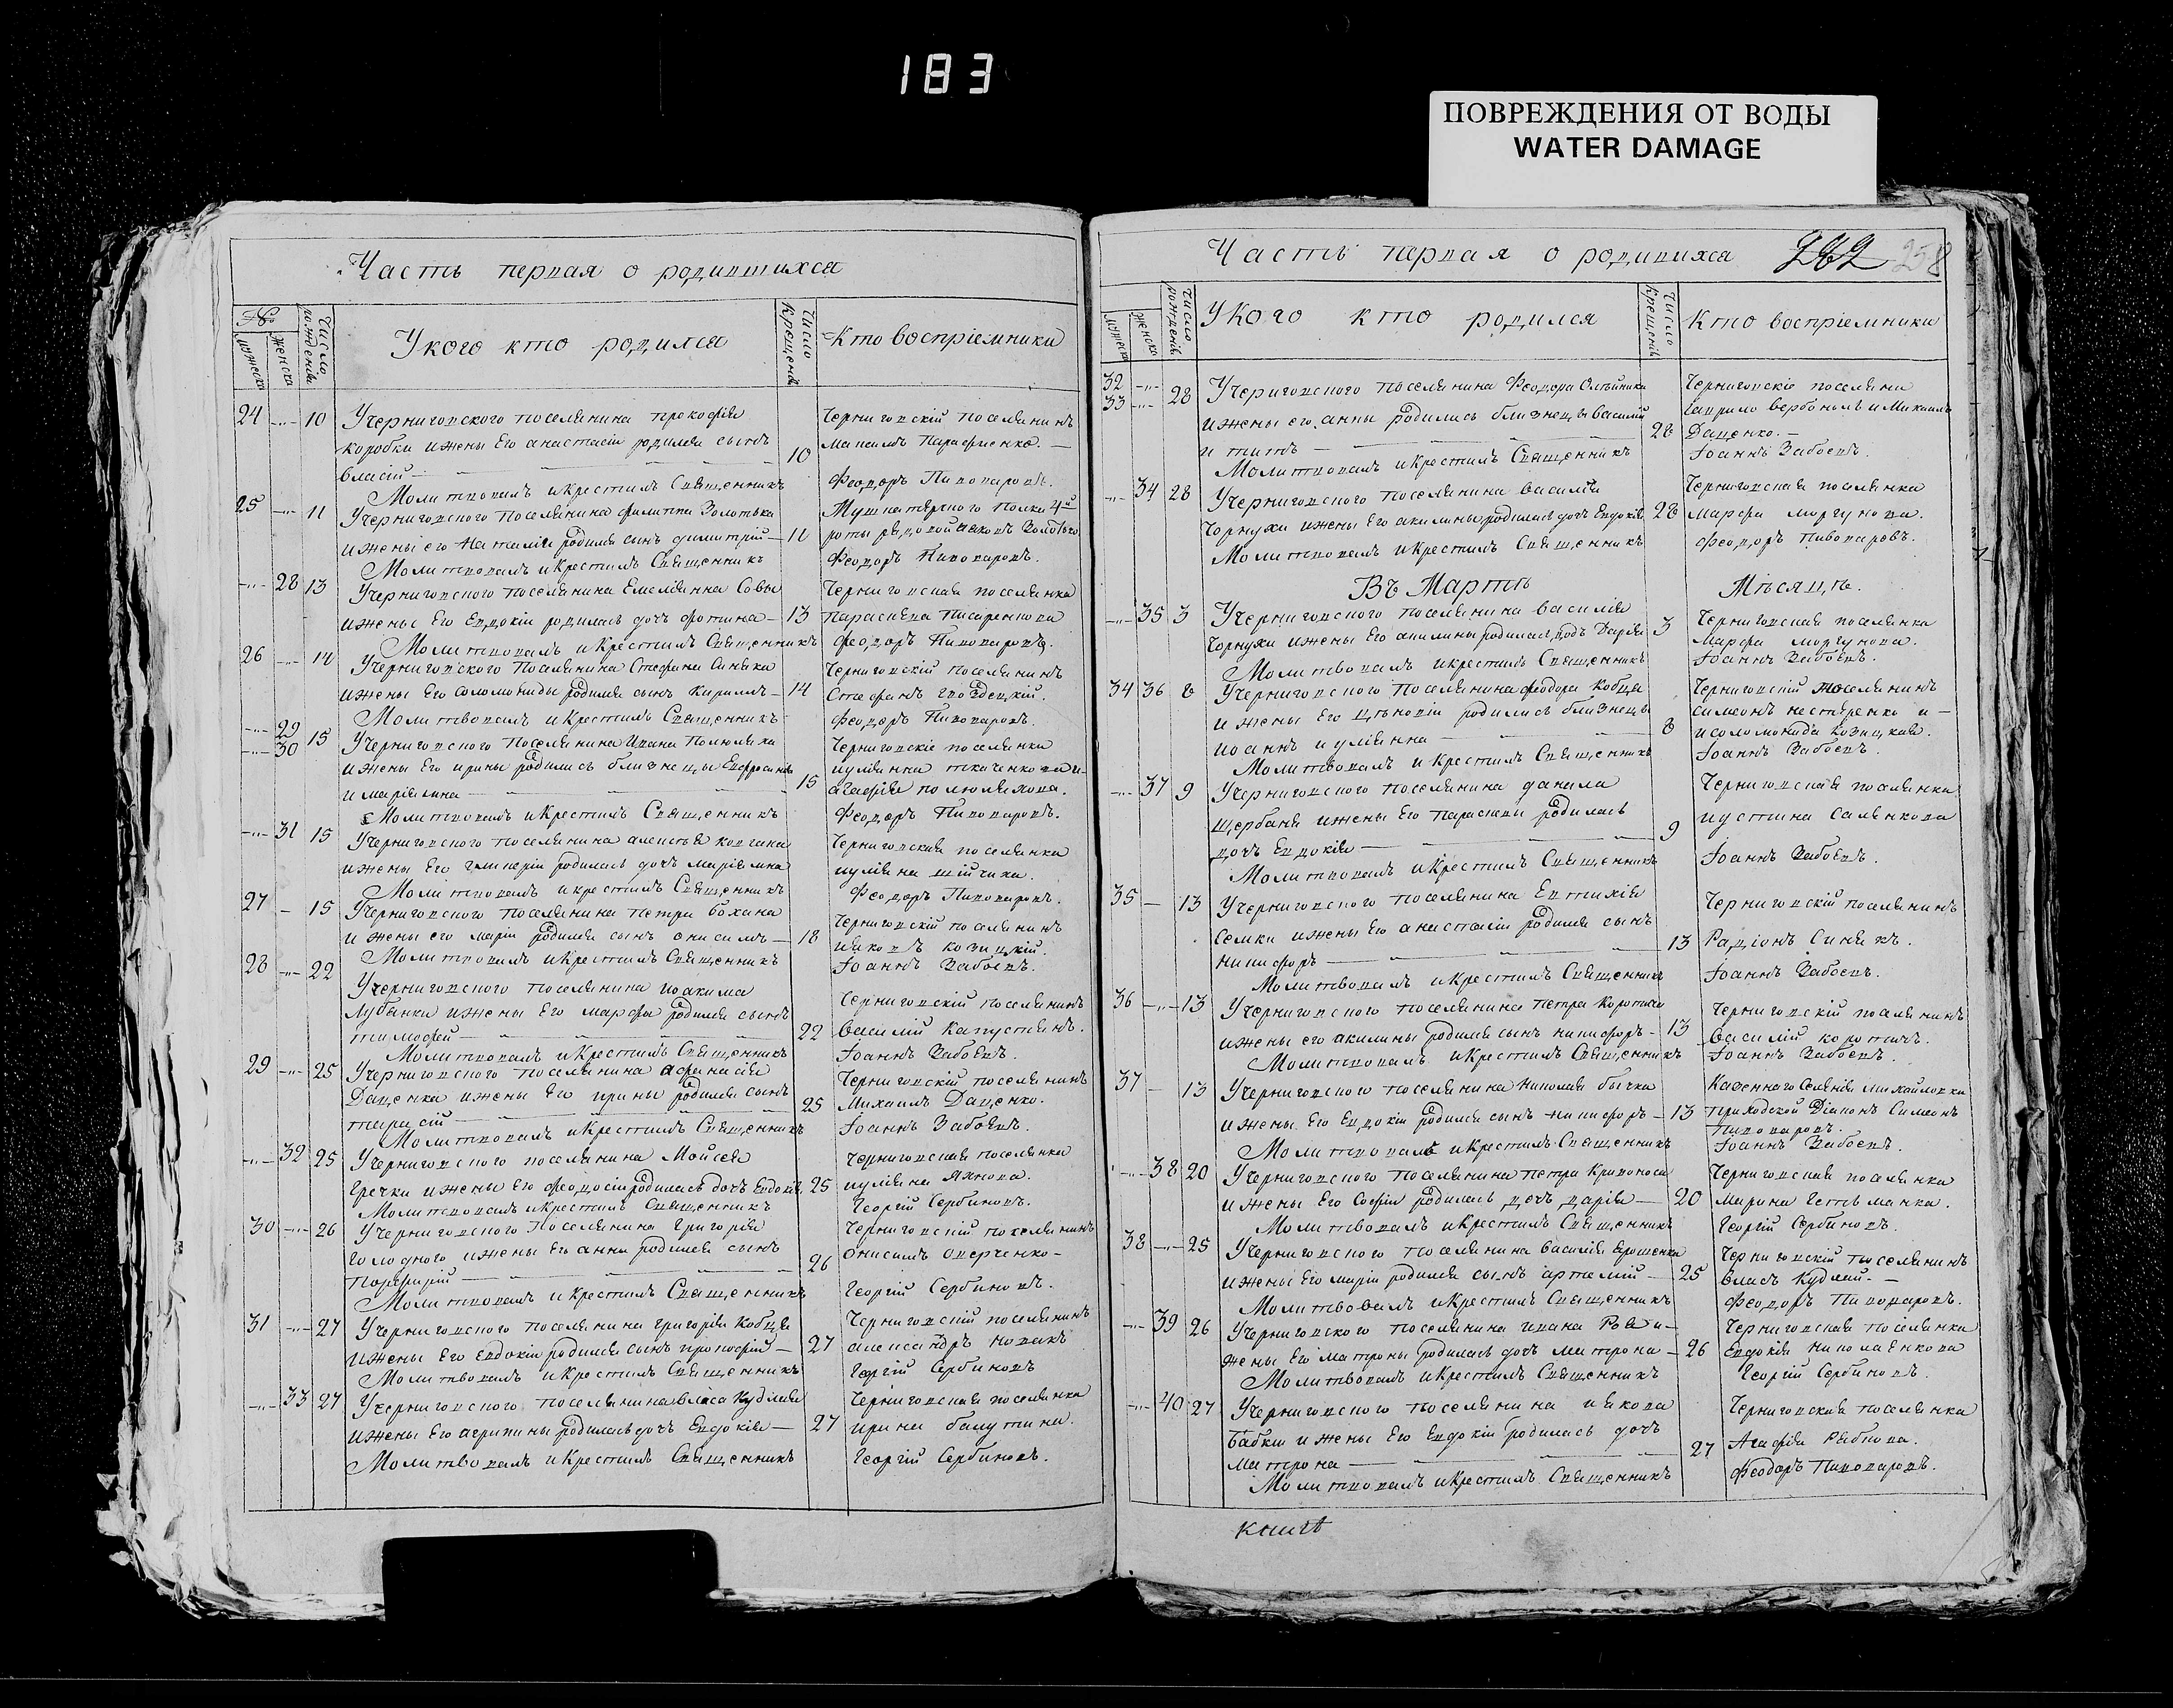 183
ПОВРЕЖДЕНИЯ ОТ ВОДЫ
WATER DAMAGE
Часть первая о родившихся
№
мужеска
женска
Число рождения
У кого кто родился
Число Крещения
Кто восприемники
24 -„- 10 У Черниговского поселянина прокофия
коробки и жены Его анастасии родился сынъ
власий 10
Молитвовалъ и Крестилъ Священникъ
Черниговский поселянинъ
Феодоръ Пивоваровъ.
25 -„- 11 У Черниговского поселянина филиппа Золотька
и жены его Наталии родился сынъ димитрий 11
Молитвовалъ и Крестилъ Священникъ
Мушкатерского полка 4й
роты рядовой
Феодоръ Пивоваровъ.
-„- 28 13 У Черниговского поселянина Емелияна Совы
и жены Его Евдокии родилась дочь фотина 13
Молитвовалъ и Крестилъ Священникъ
Черниговская поселянка
Параскева Писаренкова
Феодоръ Пивоваровъ.
26 -„- 14 У Черниговского Поселянина Стефана Синяка
и жены Его Соломониды родился сынъ Кириллъ 14
Молитвовалъ и Крестилъ Священникъ
Черниговский поселянинъ
Стефанъ гвоздецкий.
Феодоръ Пивоваровъ.
-„- 29
-„- 30 15 У Черниговского Поселянина Ивана Полюляха
и жены Его ирины родились близнецы Ефросиния
и мариямна 15
Молитвовалъ и Крестилъ Священникъ
Черниговские поселянки
иулияна ткаченкова и
агафия полюляхова.
Феодоръ Пивоваровъ.
-„- 31 15 У Черниговского поселянина алексея
и жены Его гликерии родилась дочь мариямна
Молитвовалъ и крестилъ Священникъ
Черниговская поселянка
иулияна
Феодоръ Пивоваровъ.
27 - 15 У Черниговского поселянина петра бохана
и жены его марии родился сынъ онисимъ 18
Молитвовалъ и Крестилъ Священникъ
Черниговский поселянинъ
иаковъ козицкий.
Иоаннъ Забоевъ.
28 -„- 22 У Черниговского поселянина иоакима
Лубянки и жены Его марфы родился сынъ
тимофей 22
Молитвовалъ и Крестилъ Священникъ
Черниговский поселянинъ
Василий Капустянъ.
Иоаннъ Забоевъ.
29 -„- 25 У Черниговского поселянина афанасия
Даценка и жены Его ирины родился сынъ
тарасий 25
Молитвовалъ и Крестилъ Священникъ
Черниговский поселянинъ
Михаилъ Даценко.
Иоаннъ Забоевъ.
-„- 32 25 У Черниговского поселянина Мойсея
Гречки и жены Его феодосии родилась дочь Евдокия 25
Молитвовалъ и Крестилъ Священникъ
Черниговская поселянка
иулияна Яхнова.
Георгий Сербиновъ.
30 -„- 26 У Черниговского Поселянина Григория
Голодного и жены Его анны родился сынъ
Порфирий 26
Молитвовалъ и Крестилъ Священникъ
Черниговский поселянинъ
онисимъ
Георгий Сербиновъ.
31 -„- 27 У Черниговского поселянина григория Кобця
и жены Его Евдокии родился сынъ прокофий 27
Молитвовалъ и Крестилъ Священникъ
Черниговский поселянинъ
александръ новакъ
Георгий Сербиновъ
-„- 33 27 У Черниговского поселянина власа Кудлая
и жены Его агрипины родилась дочь Евдокия 27
Молитвовалъ и Крестилъ Священникъ
Черниговская поселянка
ирина балутина.
Георгий Сербиновъ.
Часть первая о родившихся 262 258
мужеска
женска
Число рождения
У кого кто родился
Число Крещения
Кто восприемники
32 -„-
33 -„- 28 У Черниговского поселянина Феодора Олейника
и жены его анны родились близнецы василий
и титъ 28
Молитвовалъ и Крестилъ Священникъ
Черниговские поселяни
Гаврило и Михаилъ
Даценко.
Иоаннъ Забоевъ.
-„- 34 28 У Черниговского поселянина василия
Чорнухи и жены Его акилины родилась дочь Евдокия 28
Молитвовалъ и Крестилъ Священникъ
Черниговская поселянка
Марфа моргунова.
Феодоръ Пивоваровъ.
Въ Марте Месяце.
-„- 35 3 У Черниговского поселянина василия
Чорнухи и жены Его акилины родилась дочь Дария 3
Молитвовалъ и крестилъ Священникъ
Черниговская поселянка
Марфа моргунова.
Иоаннъ Забоевъ.
34 36 8 У Черниговского поселянина феодора Кобця
и жены Его родились близнецы
иоаннъ и улиянна 8
Молитвовалъ и Крестилъ Священникъ
Черниговский поселянинъ
Симеонъ нестеренко и
и соломонида Козицкая.
Иоаннъ Забоевъ.
-„- 37 9 У Черниговского поселянина данила
Щербаня и жены Его параскевы родилась
дочь Евдокия 9
Молитвовалъ и Крестилъ Священникъ
Черниговская поселянка
иустина
Иоаннъ Забоевъ.
35 - 13 У Черниговского поселянина Евтихия
Семки и жены Его анастасии родился сынъ
никифоръ 13
Молитвовалъ и Крестилъ Священникъ
Черниговский поселянинъ
Радионъ Синякъ.
Иоаннъ Забоевъ.
36 -„- 13 У Черниговского поселянина петра Коротича
и жены его акилины родился сынъ никифоръ 13
Молитвовалъ и Крестилъ Священникъ
Черниговский поселянинъ
василий коротичъ.
Иоаннъ Забоевъ.
37 - 13 У Черниговского поселянина Николая бычка
и жены Его Евдокии родился сынъ никифоръ 13
Молитвовалъ и Крестилъ Священникъ
Казенного Селения Михайловки
приходской Диаконъ Симеонъ
Пивоваровъ.
Иоаннъ Забоевъ.
-„- 38 20 У Черниговского поселянина петра Кривоноса
и жены Его Софии родилась дочь дария 20
Молитвовалъ и Крестилъ Священникъ
Черниговская поселянка
марина гетьманка.
Георгий Сербиновъ.
38 -„- 25 У Черниговского поселянина василия Ярошенка
и жены Его марии родился сынъ артемий 25
Молитвовалъ и Крестилъ Священникъ
Черниговский поселянинъ
власъ Кудлай.
Феодоръ Пивоваровъ.
-„- 39 26 У Черниговского поселянина ивана и
жены Его матроны родилась дочь матрона 26
Молитвовалъ и Крестилъ Священникъ
Черниговская поселянка
Евдокия николаенкова
Георгий Сербиновъ.
-„- 40 27 У Черниговского поселянина иакова
бабки и жены Его Евдокии родилась дочь
матрона 27
Молитвовалъ и Крестилъ Священникъ
Черниговская поселянка
Агафия Рябкова.
Феодоръ Пивоваровъ.